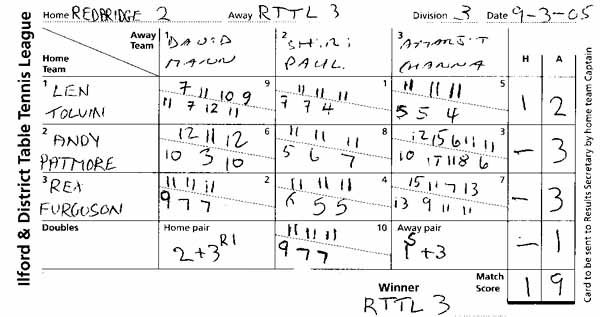 Home REDBRIDGE 2 Away RTTL 3 Division 3 Date 9-3-05
Ilford & District Table Tennis League
Away Team
Home Team
1 DAVID MANN
2 SHRI PAUL.
3 AMARJIT CHANNA
H A
1 LEN TOLVIN
7 11 10 9 9
11 7 12 11
11 11 11 1
7 7 4
11 11 11 5
5 5 4
1 2
2 ANDY PATMORE
12 11 12 6
10 3 10
11 11 11 8
5 6 7
12 15 6 11 11 3
10 11 8 6
- 3
3 REX FURGUSON
11 11 11 2
9 7 7
11 11 11 4
5 5
15 11 7 13 7
13 9 11 11
- 3
Doubles
Home pair
2+3
11 11 11 10
9 7 7
Away pair
+3
- 1
Winner
RTTL 3
Match Score
1 9
Card to be sent to Results Secretary by home team Captain